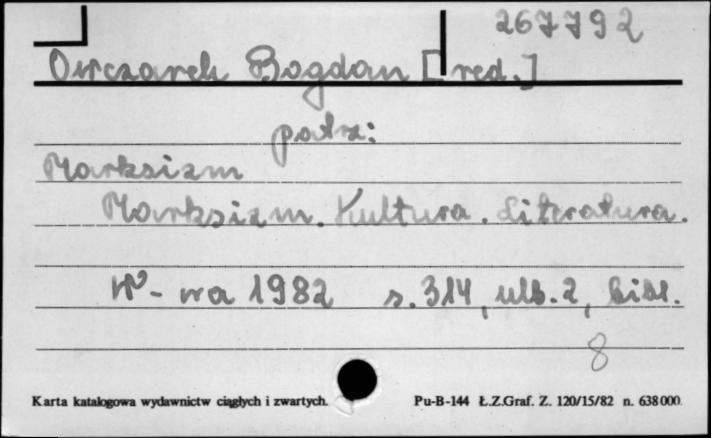 267792
Owczarek Bogdan [red.]
patrz:
Marksizm
Marksizm. Kultura. Literatura.
W-wa 1982 s. 314, ulb. 2, bibl.
8
Karta katalogowa wydawnictw ciągłych i zwartych. Pu-B-144 Ł.Z.Graf. Z. 120/15/82 n. 638000.